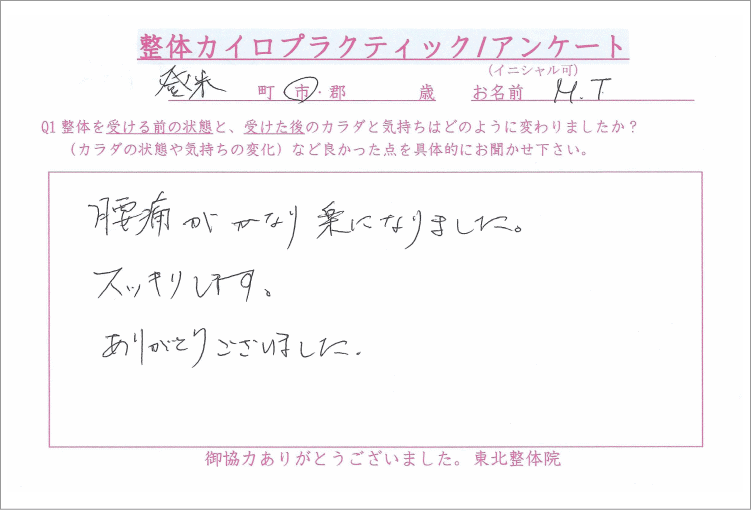 整体カイロプラクティック/アンケート
(イニシャル可)
登米 町 市・郡 歳 お名前 M.T
Q1整体を受ける前の状態と、受けた後のカラダと気持ちはどのように変わりましたか?
(カラダの状態や気持ちの変化)など良かった点を具体的にお聞かせ下さい。
腰痛がかなり楽になりました。
スッキリします。
ありがとうございました.
御協力ありがとうございました。東北整体院